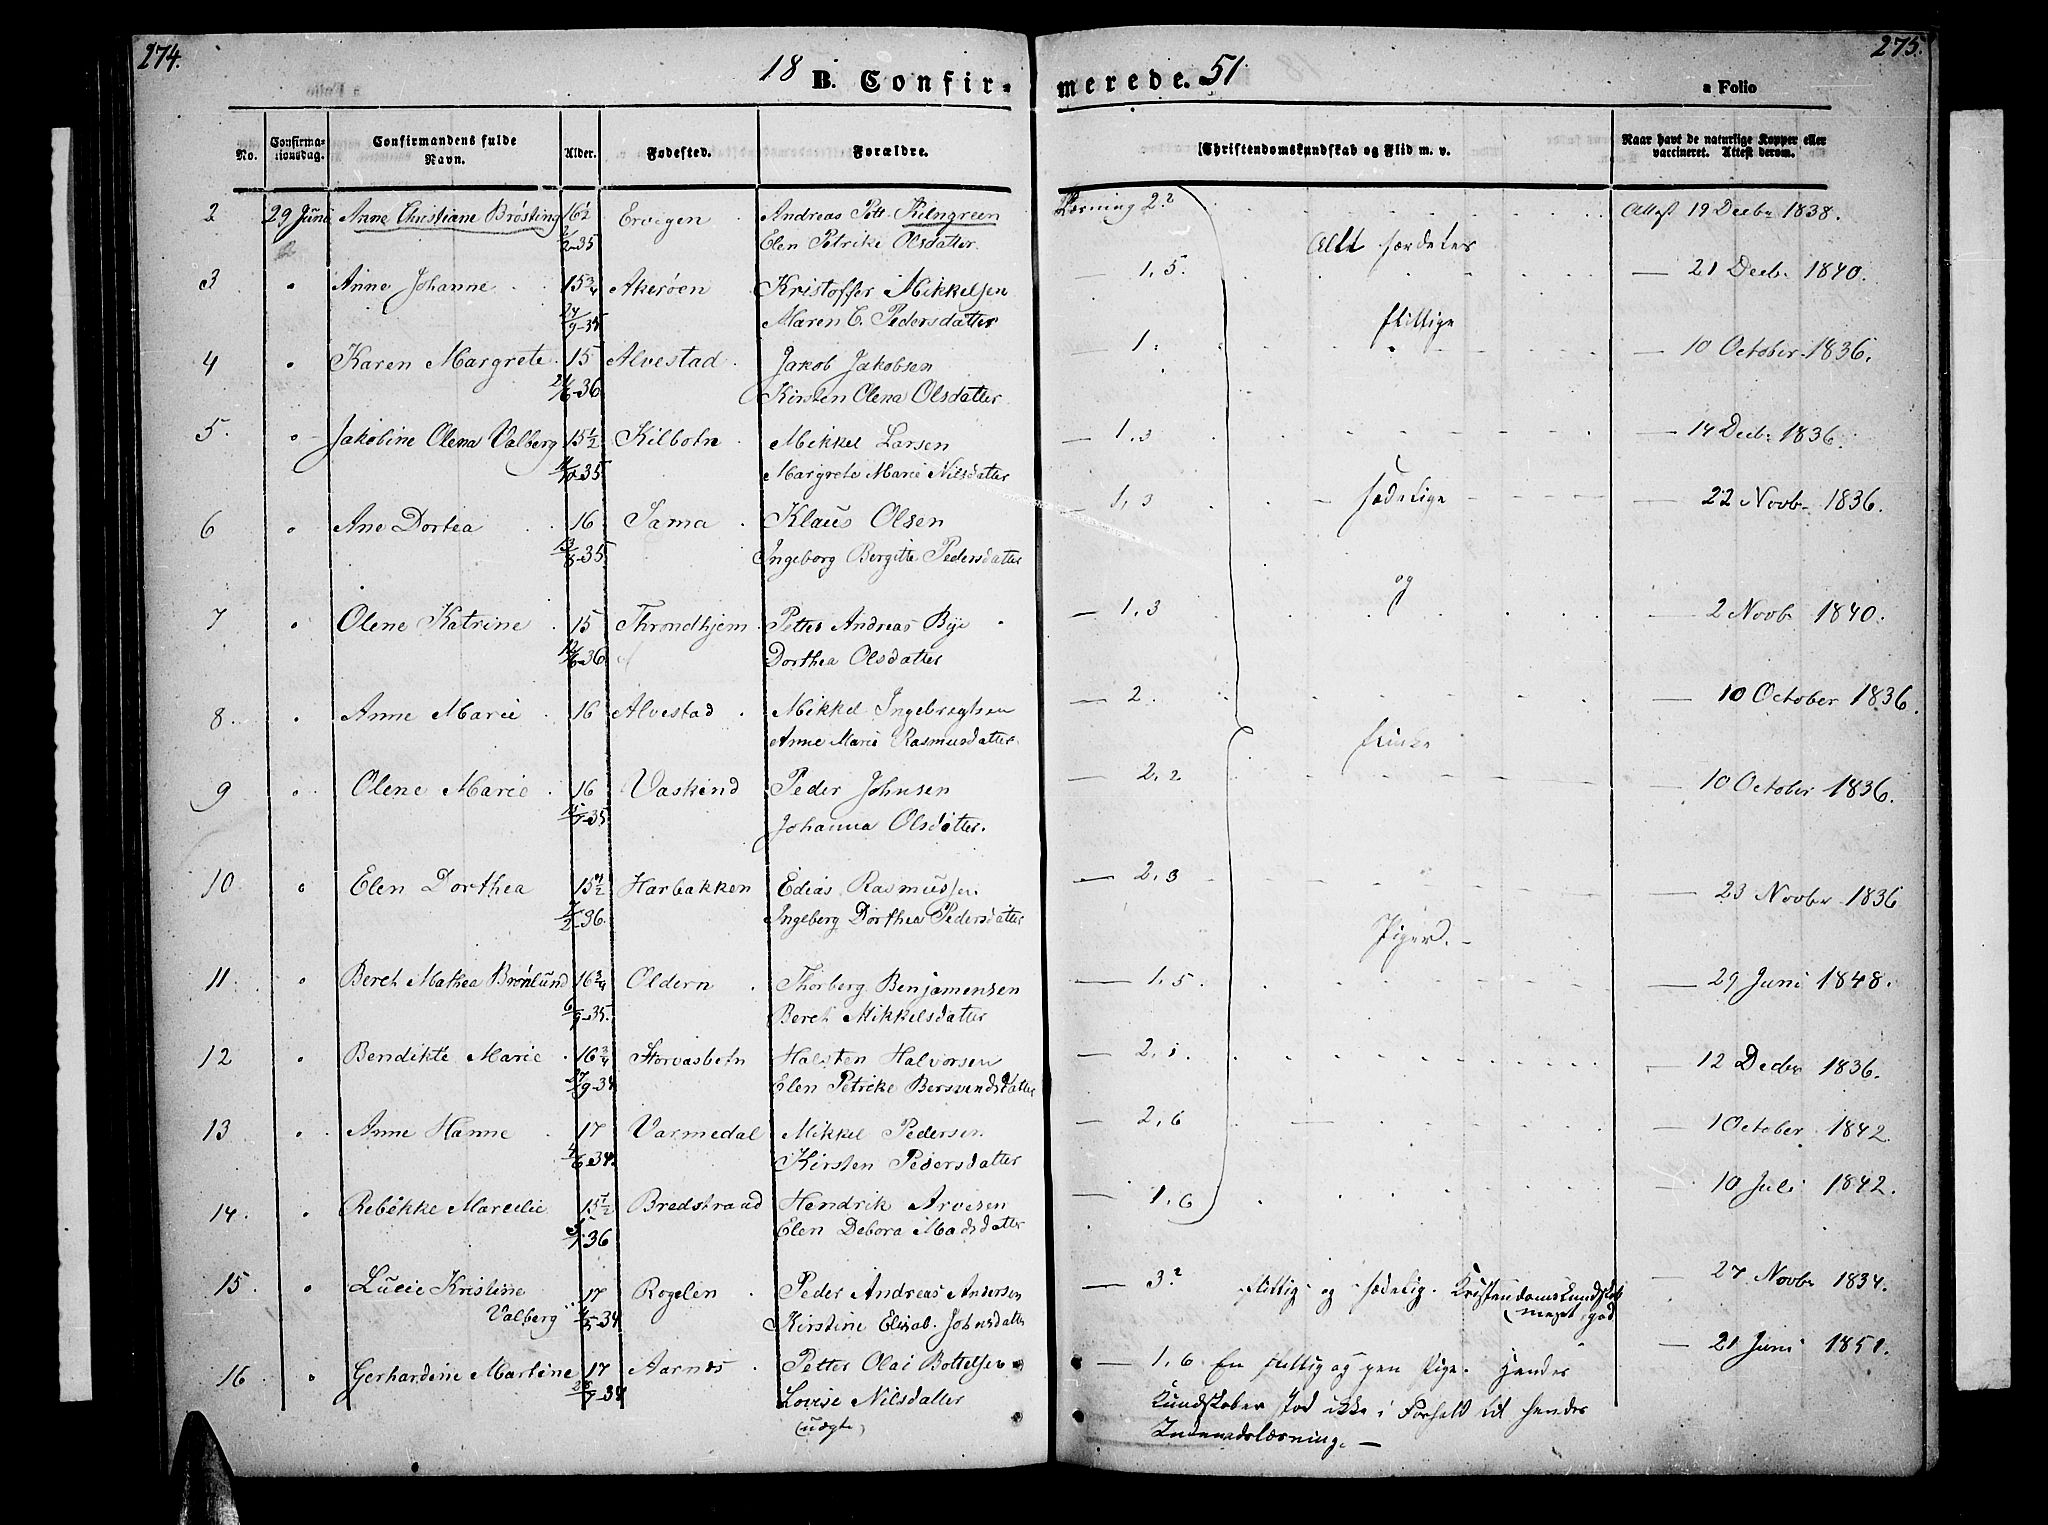 274.
275.
18 B. Confir-merede. 51
a Folio
No.
Confirma-tionsdag.
Confirmandens fulde Navn.
Alder.
Fødested.
Forældre.
Christendomskundskab og Flid m. v.
Naar havt de naturlige Kopper eller vaccineret. Attest derom.
2 29 Juni Anne Christiane Brösting 16½ Ervigen Andreas Pett. Læsning 2² Attest 19 Decbr 1838.
2/2-35 Elen Petrike Olsdatter.
Alle særdeles
3 " Anne Johanne 15¾ Akerøen Kristoffer Mikkelsen — 1,5. — 21 Decbr 1840.
24/9-35 Maren C. Pedersdatter
flittige
4 " Karen Margrete 15 Alvestad Jakob Jakobsen — 1. — 10 October 1836.
21/6-36 Kirsten Olena Olsdatter
5. " Jakobine Olena Valberg 15½ Kilbotn Mikkel Larsen — 1,3 — 14 Decbr 1836.
35 Margrete Marie Nilsdatter
6 " Ane Dortea 16 Sama Klaus Olsen — 1,3 — sædelige — 22 Novbr 1836.
13/8-35 Ingeborg Bergitte Pedersdatter
og
7 " Olene Katrine 15 Throndhjem Petter Andreas Bye — 1,3 2 Novbr 1840.
36 Dorthea Olsdatter
8. " Anne Marie 16 Alvestad Mikkel Ingebregtsen — 2. — 10 October 1836.
Anne Marie Rasmusdatter
9 " Olene Marie 16 Vaskind Peder Johnsen — 2,2 — 10 October 1836.
35 Johanna Olsdatter.
10. " Elen Dorthea 15½ Harbakken Edias Rasmussen — 2,3 — 23 Novbr 1836
2-36. Ingeberg Dorthea Pedersdatter
Piger. —
11. " Beret Mathea Brönlund 16¾ Oldern Thorberg Benjamensen — 1,5 — 29 Juni 1848.
6/9-35. Beret Mikkelsdatter
12 " Bendikte Marie 16¾ Storvasbotn Halsten Halvorsen — 2,1. — 12 Decbr 1836.
27/9-34 Elen Petrike Bersvendsdatter
13 " Anne Hanne 17 Varmedal Mikkel Pedersen — 2,6 — 1 October 1842.
6-34. Kirsten Pedersdatter
14. " Rebekke Marselie 15½ Bredstrand Hendrik Arvesen — 1,6 — 10 Juli 1842.
36 Elen Debora Madsdatter
15. " Lucie Kristine 17 Rogelen Peder Andreas Andersen — 3² flittig og sædelig. Kristendomskundskab — 27 Novbr 1834.
Valberg 5-34 Kirstine Elisab. Johnsdatter meget god
16 " Gerhardine Martine 17 Aarnes Petter Olai Bottelsen — 1,6 En flittig og pen Pige. Hendes — 21 Juni 1851.
34 Lovise Nilsdatter Kundskaber stod ikke i Forhold til hendes
(uægte) Indenadslæsning. —